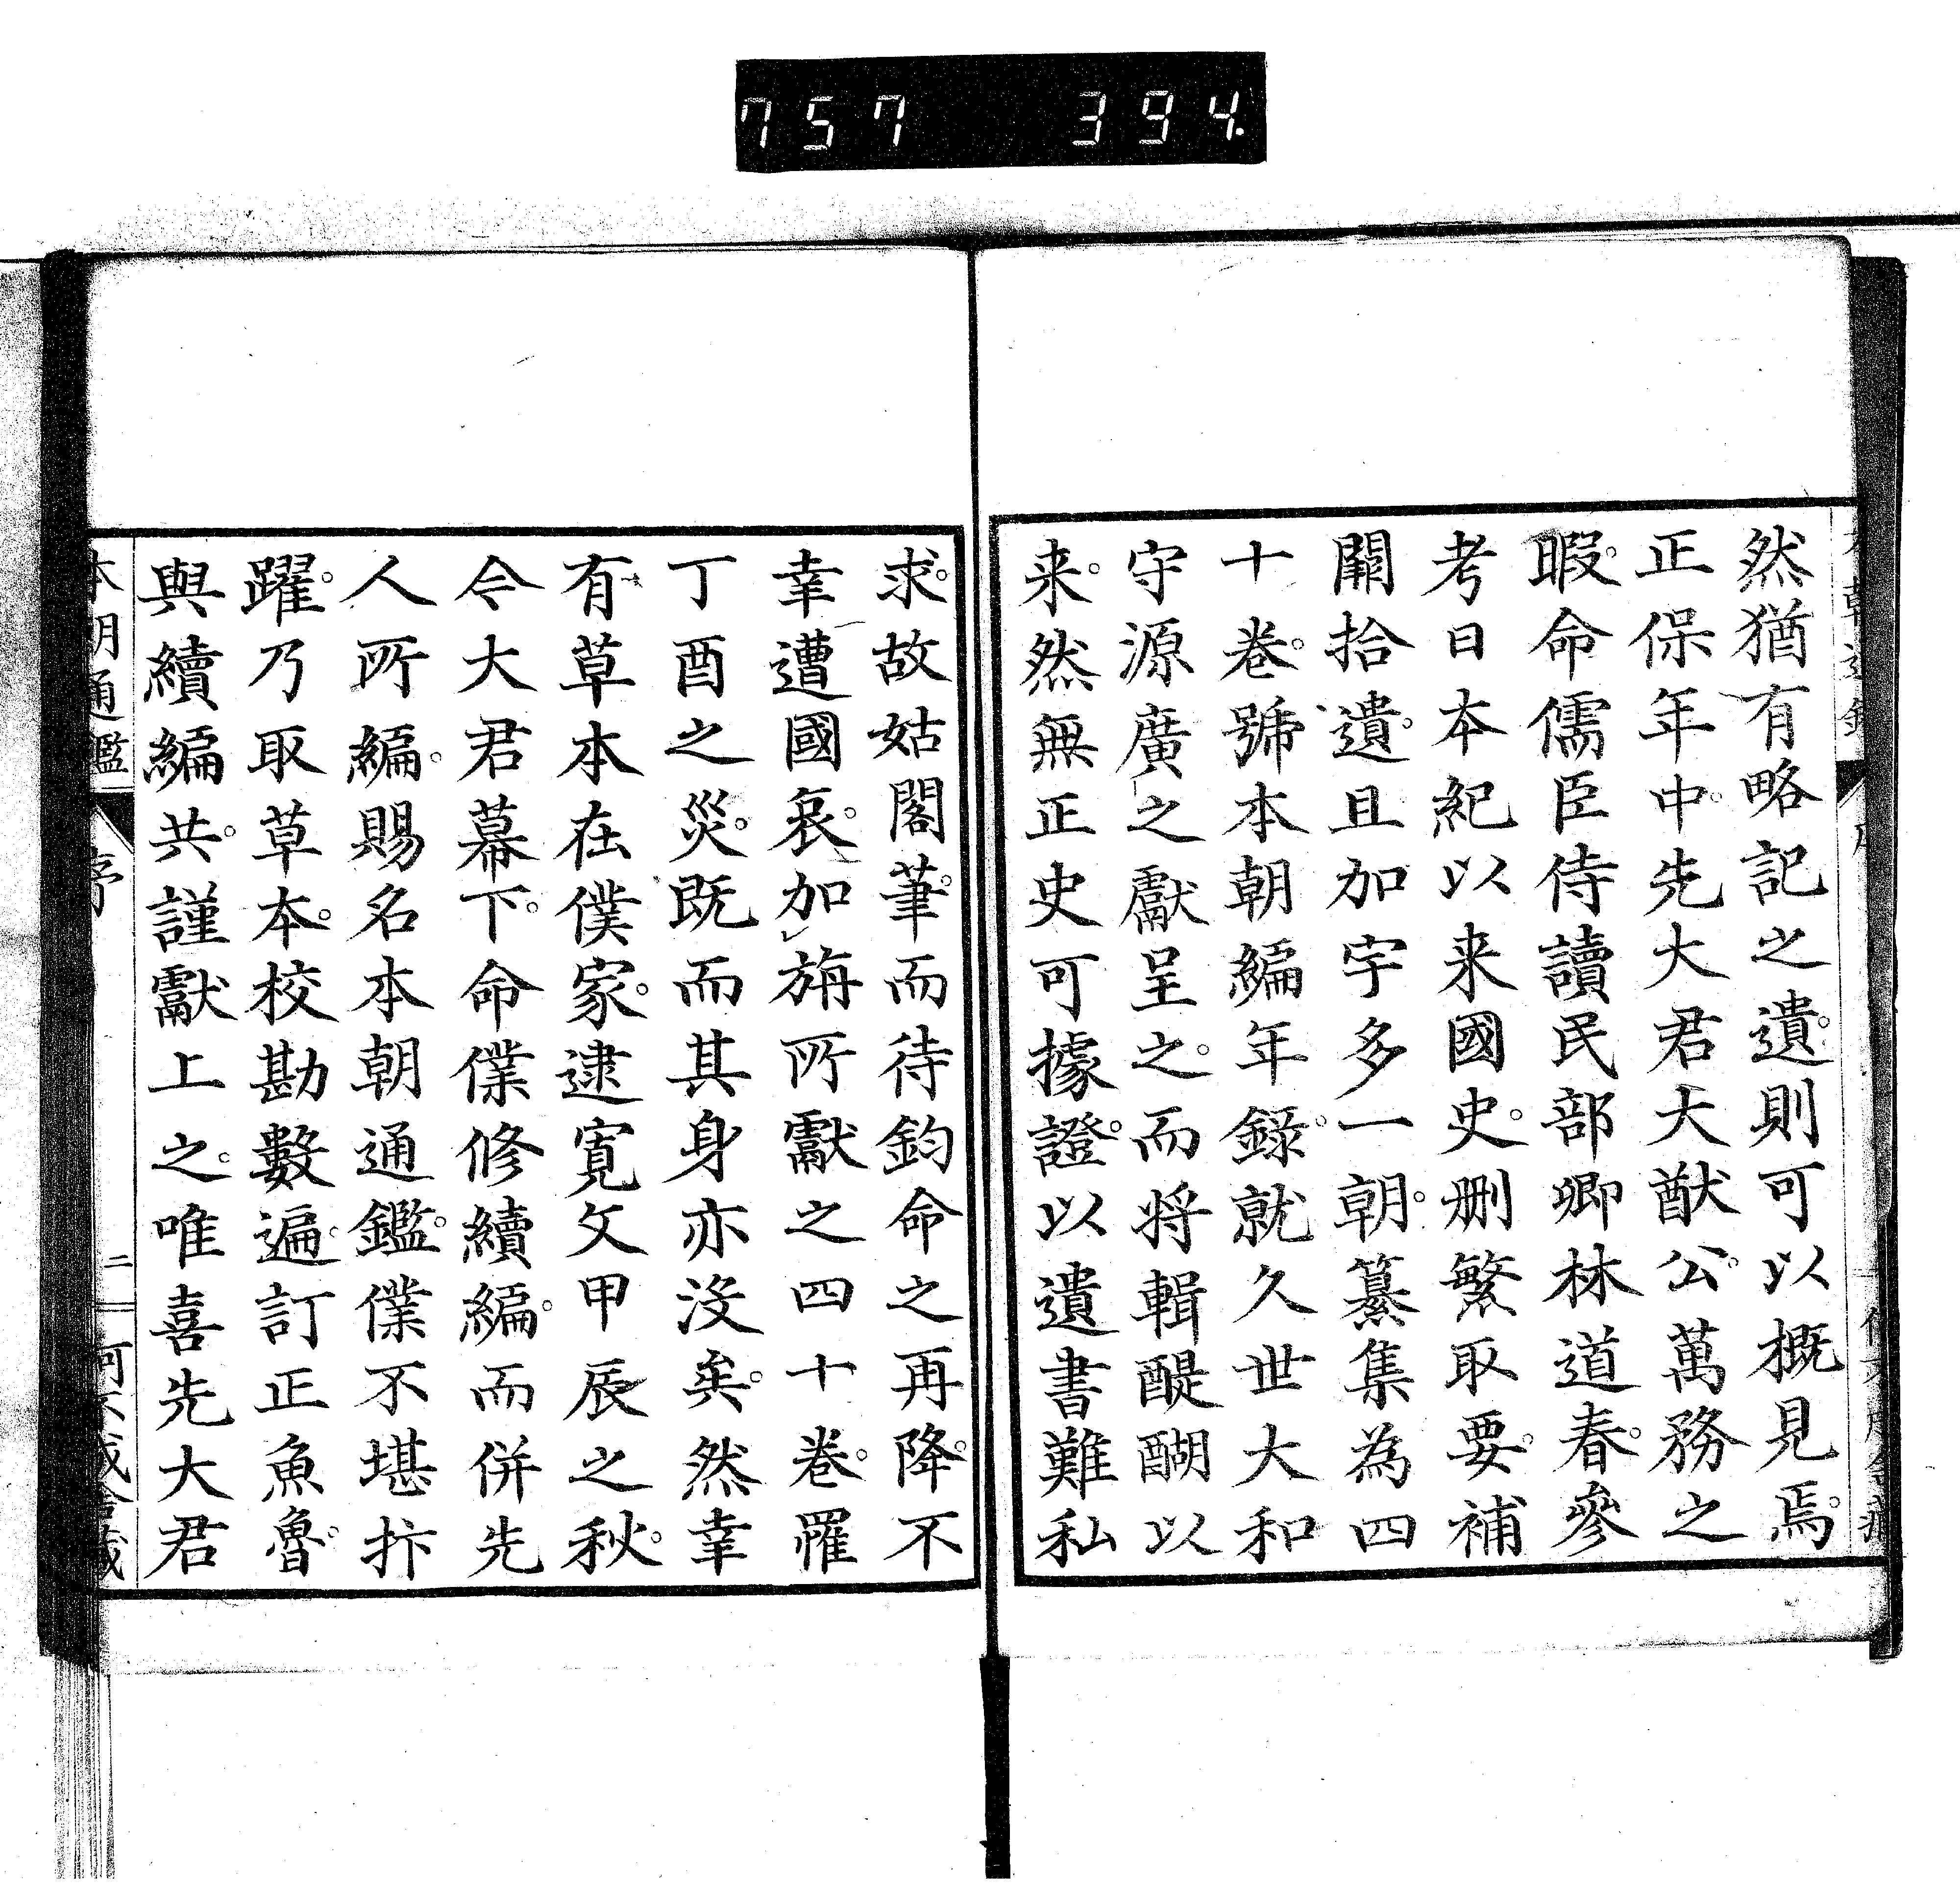 757 394.
然猶有略記之遺。則可以概見焉。
正保年中。先大君大猷公。萬務之
暇。命儒臣侍讀民部卿林道春。參
考日本紀以来國史。刪繁取要。補
闕拾遺。且加宇多一朝。纂集為四
十卷。號本朝編年錄。就久世大和
守源廣之獻呈之。而将輯醍醐以
来。然無正史可據證。以遺書難私
求。故姑閣筆。而待鈞命之再降。不
幸遭國哀。加旃所獻之四十卷。罹
丁酉之災。既而其身亦沒矣。然幸
有草本在僕家。逮寬文甲辰之秋。
今大君幕下。命僕修續編。而併先
人所編。賜名本朝通鑑。僕不堪抃
躍。乃取草本。校勘數遍。訂正魚魯。
與續編共。謹獻上之。唯喜先大君
本朝通鑑 序 二